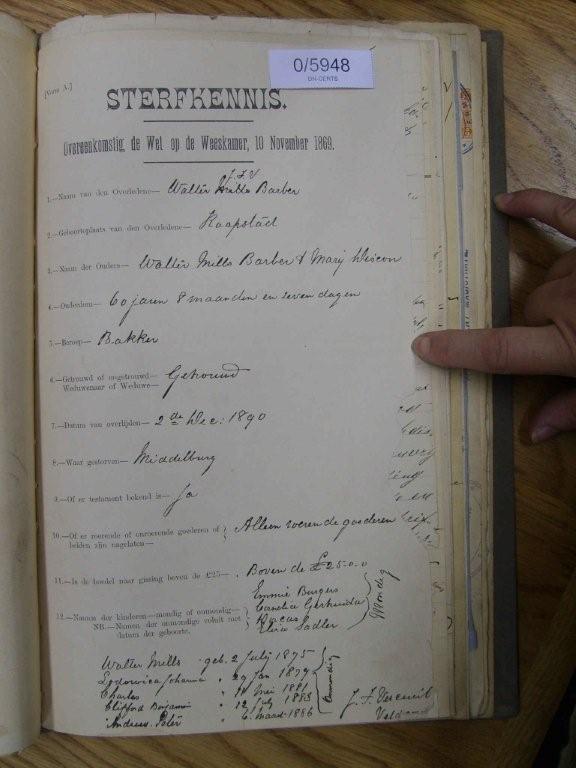 0/5948
[Vorm A.]
STERFKENNIS.
Overeenkomstig de Wet op de Weeskamer, 10 November 1869.
J.F.V
1.—Naam van den Overledene— Walter Mills Barber
2.—Geboorteplaats van den Overledene— Kaapstad
3.—Naam der Ouders— Walter Mills Barber & Mary
4.—Ouderdom— 60 jaren 8 maanden en zeven dagen
5.—Beroep— Bakker
6.—Getrouwd of ongetrouwd— Getrouwd
Weduwenaar of Weduwe—
7.—Datum van overlijden— 2de Dec: 1890
8.—Waar gestorven— Middelburg
9.—Of er testament bekend is— Ja
10.—Of er roerende of onroerende goederen of Alleen roerende goederen
beiden zijn nagelaten—
11.—Is de boedel naar gissing boven de £25— Boven de £25.0.0
Emmie Burgers
12.—Namen der kinderen—mondig of onmondig— Gertruida
NB.—Namen der onmondige voluit met Dorcas Mondig
datum der geboorte. Sadler
Walter Mills geb. 2 Julij 1875
Lodowica Johanna " 29 Jan 1879
Charles " 11 Mei 1881 onmondig
Clifford Benjamin " 12 July 1883 J. F.
Andries Peter " 6 Maart 1886